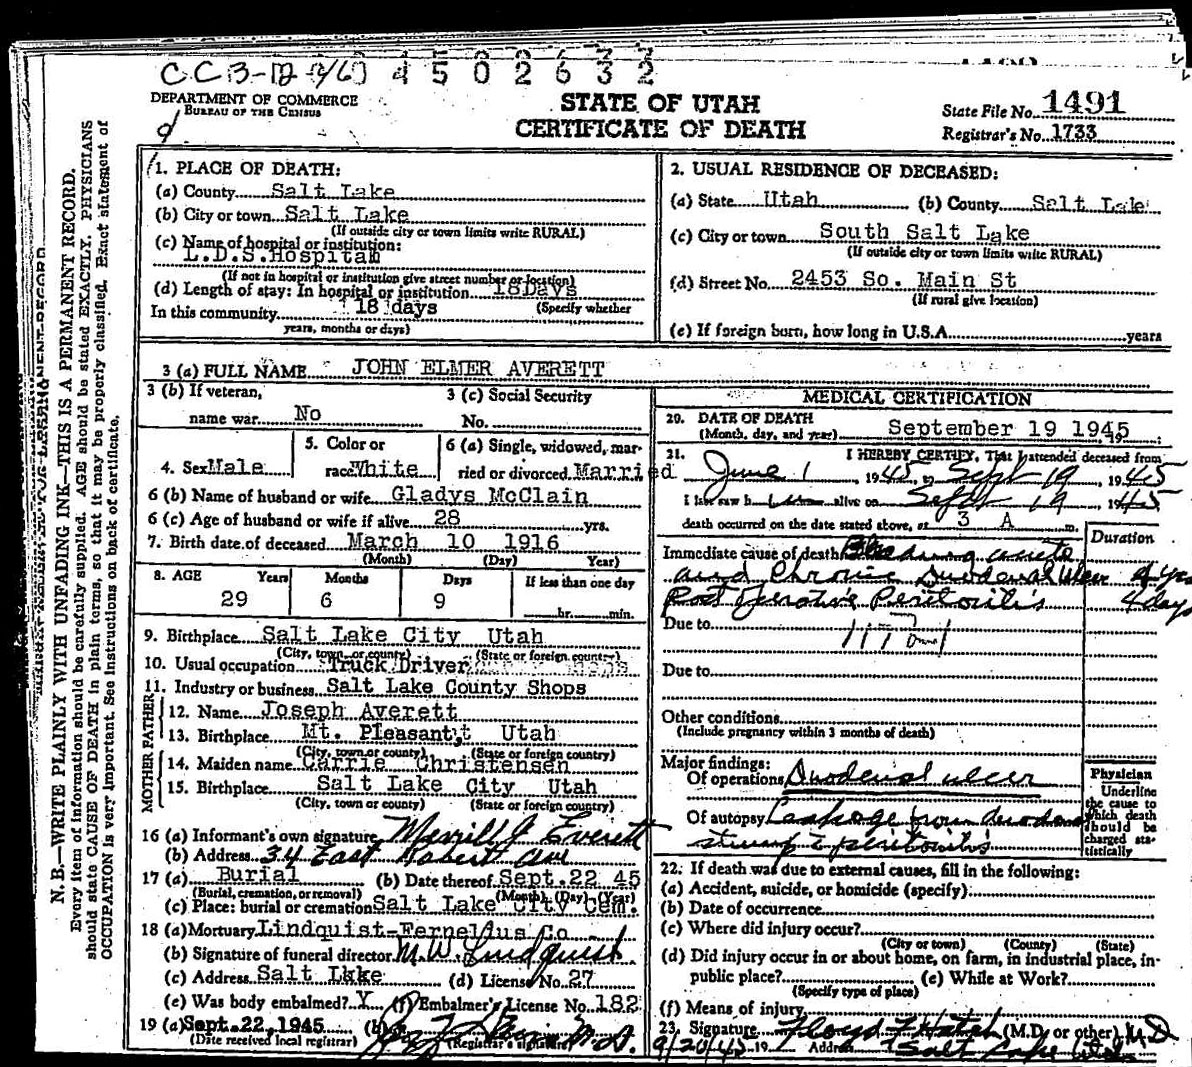 CCB-12
4 5 0 2 6 3 2
DEPARTMENT OF COMMERCE
BUREAU OF THE CENSUS
STATE OF UTAH
CERTIFICATE OF DEATH
State File No. 1491
Registrar's No. 1733
N. B.—WRITE PLAINLY WITH UNFADING INK—THIS IS A PERMANENT RECORD.
Every item of information should be carefully supplied. AGE should be stated EXACTLY. PHYSICIANS
should state CAUSE OF DEATH in plain terms, so that it may be properly classified. Exact statement of
OCCUPATION is very important. See instructions on back of certificate.
1. PLACE OF DEATH:
(a) County Salt Lake
(b) City or town Salt Lake
(If outside city or town limits write RURAL)
(c) Name of hospital or institution:
L.D.S. Hospital
(If not in hospital or institution give street number or location)
(d) Length of stay: In hospital or institution 18Days
(Specify whether
In this community 18 days
years, months or days)
2. USUAL RESIDENCE OF DECEASED:
(a) State Utah (b) County Salt Lake
(c) City or town South Salt Lake
(If outside city or town limits write RURAL)
(d) Street No. 2453 So. Main St
(If rural give location)
(e) If foreign born, how long in U.S.A. years
3 (a) FULL NAME JOHN ELMER AVERETT
3 (b) If veteran,
name war No
3 (c) Social Security
No.
4. Sex Male
5. Color or
race White
6 (a) Single, widowed, mar-
ried or divorced Married
6 (b) Name of husband or wife Gladys McClain
6 (c) Age of husband or wife if alive 28 yrs.
7. Birth date of deceased March 10 1916
(Month) (Day) Year)
8. AGE Years Months Days If less than one day
29 6 9 hr. min.
9. Birthplace Salt Lake City Utah
(City, town or county) (State or foreign country)
10. Usual occupation Truck Driver
11. Industry or business Salt Lake County Shops
FATHER
12. Name Joseph Averett
13. Birthplace Mt. Pleasant, Utah
(City, town or county) (State or foreign country)
MOTHER
14. Maiden name Carrie Christensen
15. Birthplace Salt Lake City Utah
(City, town or county) (State or foreign country)
16 (a) Informant's own signature Merrill J Everett
(b) Address 34 East Robert Ave
17 (a) Burial (b) Date thereof Sept. 22 45
(Burial, cremation, or removal) (Month) (Day) (Year)
(c) Place: burial or cremation Salt Lake City Cem.
18 (a) Mortuary Lindquist-Ferneluus Co
(b) Signature of funeral director M. W. Lindquist
(c) Address Salt Lake (d) License No. 27
(e) Was body embalmed? Y (f) Embalmer's License No. 182
19 (a) Sept. 22, 1945 (b) M.D.
(Date received local registrar) (Registrar's signature)
MEDICAL CERTIFICATION
20. DATE OF DEATH
(Month, day, and year) September 19 1945
21. I HEREBY CERTIFY, That I attended deceased from
June 1, 1945, to Sept 19, 1945
I last saw him alive on Sept 19 1945
death occurred on the date stated above, at 3 A m.
Duration
Immediate cause of death Bleeding acute
and Chronic Duodenal Ulcer 4 yrs
Post operative Peritonitis 4 days
Due to
Due to
Other conditions
(Include pregnancy within 3 months of death)
Major findings:
Of operations Duodenal ulcer
Of autopsy Leakage from duodenal
stump & peritonitis
Physician
Underline
the cause to
which death
should be
charged sta-
tistically
22. If death was due to external causes, fill in the following:
(a) Accident, suicide, or homicide (specify):
(b) Date of occurrence
(c) Where did injury occur?
(City or town) (County) (State)
(d) Did injury occur in or about home, on farm, in industrial place, in-
public place? (e) While at Work?
(Specify type of place)
(f) Means of injury
23. Signature Floyd F Hatch (M.D. or other) M D
9/20/45 19 Address Salt Lake Utah